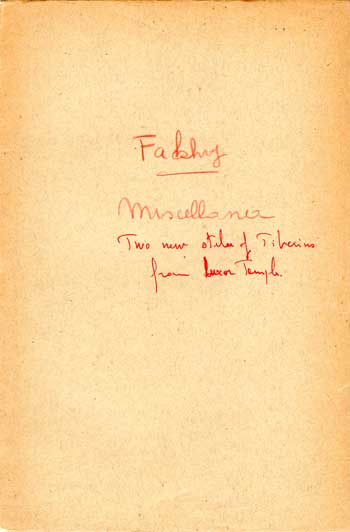 Fakhry
Miscellanea
Two new stelae of Tiberius
from Luxor Temple.